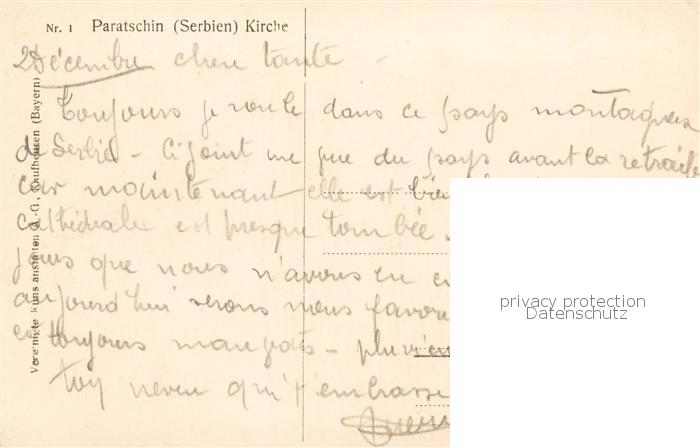 Nr. 1 Paratschin (Serbien) Kirche
2 Décembre chère tante -
Toujours je roule dans ce pays montagneux
de Serbie - Ci joint une vue du pays avant la retraite
car maintenant elle est bien
cathédrale est presque tombée.
jours que nous n'avons eu
aujourd'hui serons nous
est toujours mauvais -
Ton neveu qui t'embrasse
Vereinigte Kunstanstalten A.-G., Kaufbeuren (Bayern)
privacy protection
Datenschutz